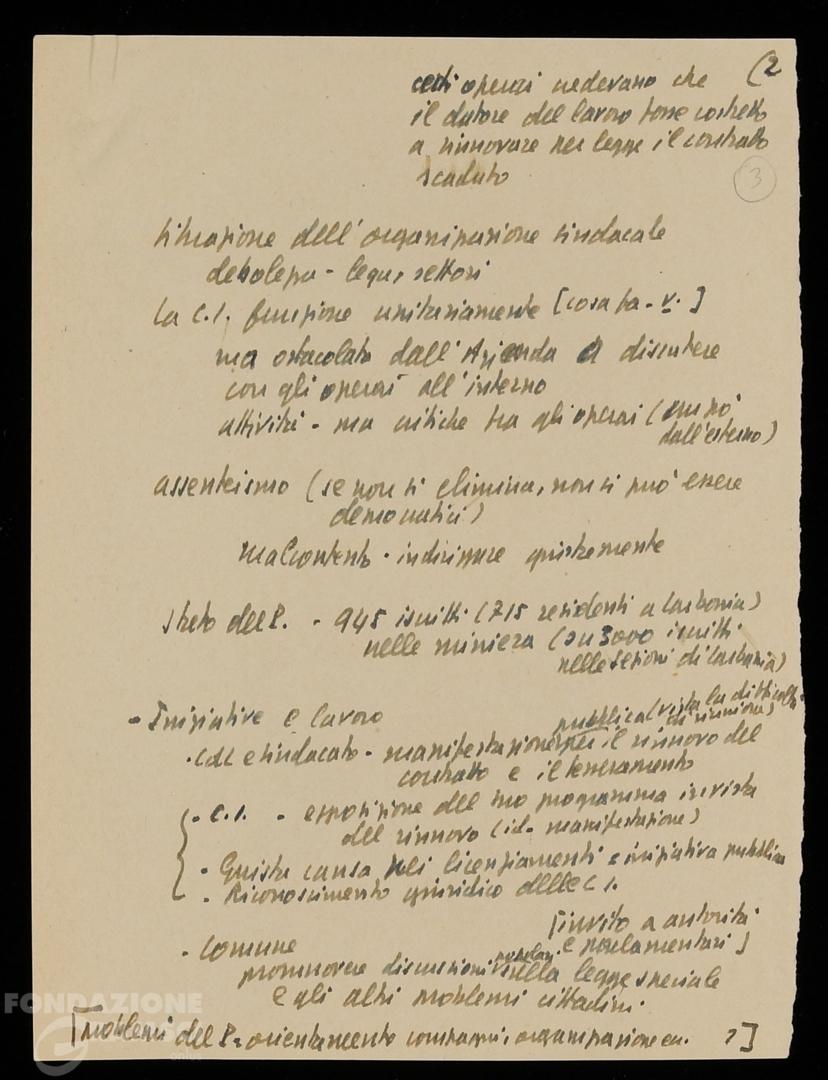 (2
certi operai credevano che
il datore del lavoro fosse costretto
a rinnovare per legge il contratto
scaduto
3
Situazione dell'organizzazione sindacale
debolezza - leghe, settori
La C.I. funzione unitariamente [cosa fa - v.]
ma ostacolato dall'Azienda a discutere
con gli operai all'interno
attività - ma critiche tra gli operai (un po'
dall'esterno)
assenteismo (se non si elimina, non si può essere
democratici)
malcontento - indirizzare giustamente
Stato del P. - 945 iscritti (715 residenti a Carbonia)
nelle miniera (su 3000 iscritti
nelle sezioni di Carbonia)
- Iniziative e lavoro
pubblica (vista la difficoltà
di riunione)
- CdL e sindacato - manifestazione per il rinnovo del
contratto e il tesseramento
- C.I. - esposizione del suo programma in vista
del rinnovo (id. manifestazione)
- Giusta causa nei licenziamenti e iniziativa pubblica
- Riconoscimento giuridico delle C.I.
[invito a autorità
e parlamentari]
- Comune
promuovere discussioni popolari sulla legge speciale
e gli altri problemi cittadini.
[Problemi del P. - orientamento compagni, organizzazione ecc. ?]
FONDAZIONE
onlus